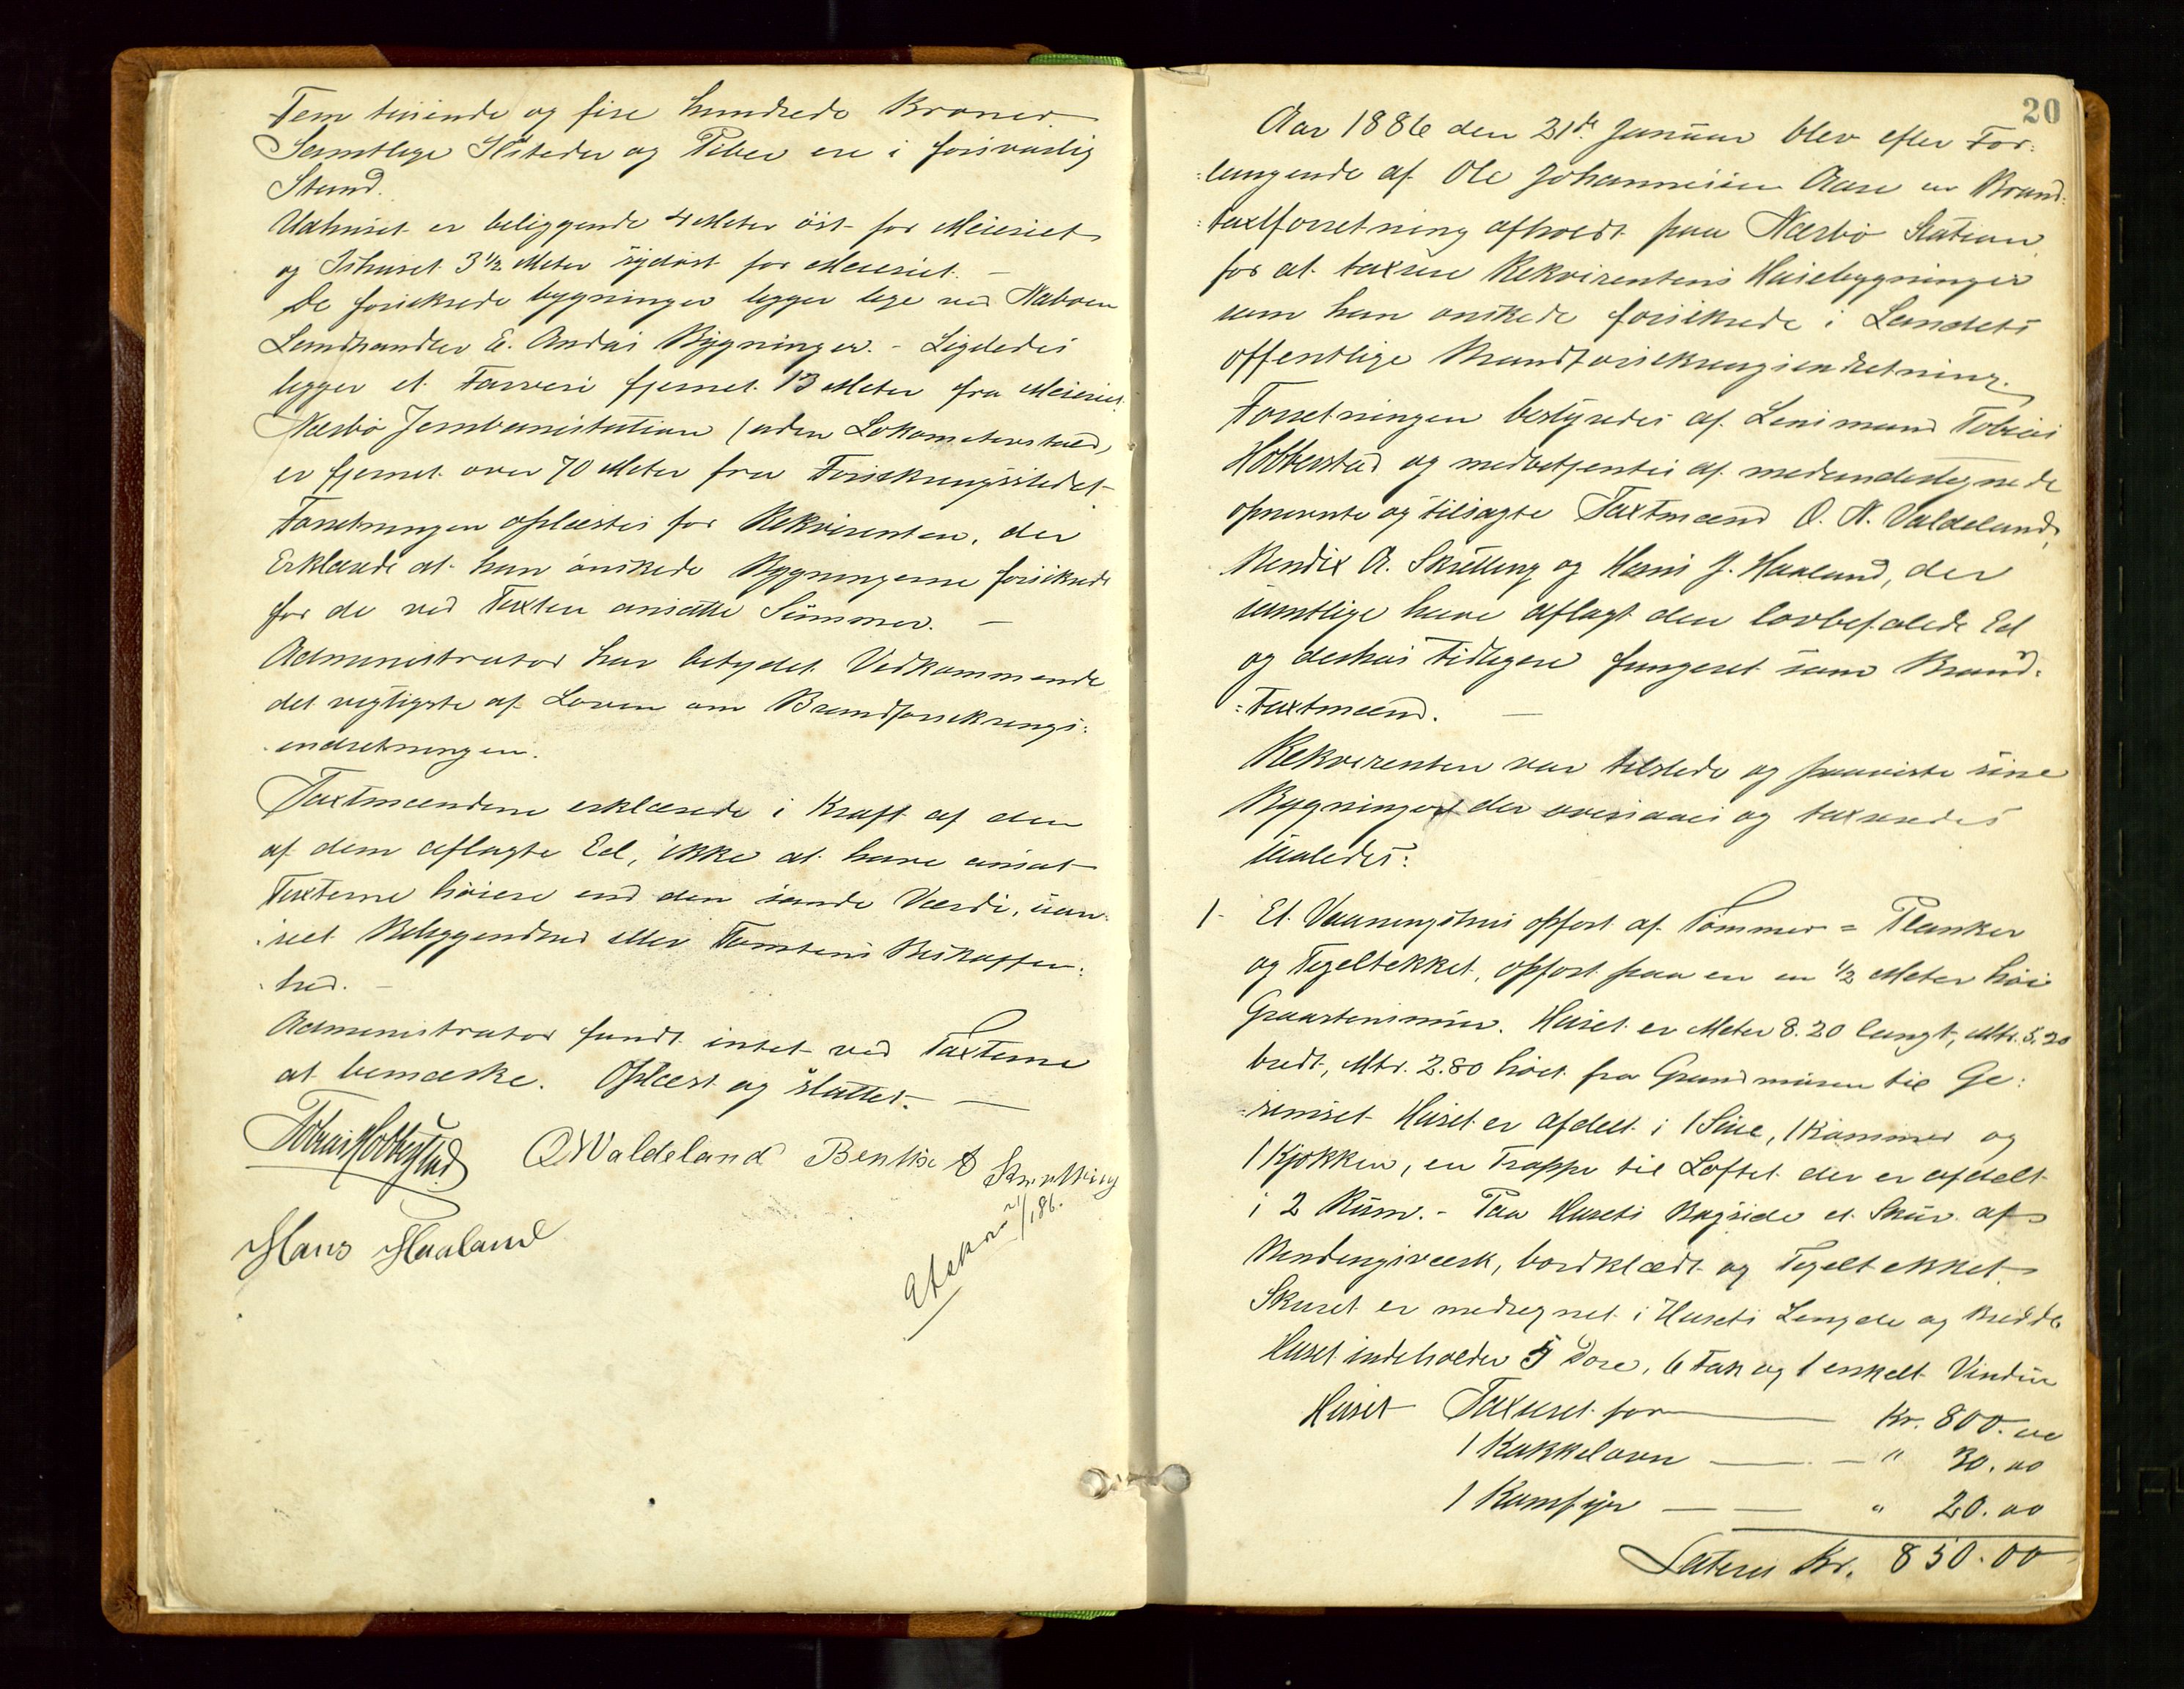 Fem tusinde og fire hundrede Kroner
Samtlige Ildsteder og Piber ere i forsvarlig
Stand.
Udhuset er beliggende 4 Meter öst for Meieriet
og Ishuset 3 1/2 Meter sydöst for Meieriet. –
De forsikrede bygninger ligger lige ved Naboen
Landhandler E. Andas Bygninger. – Ligeledes
ligger et Farveri fjernet 13 Meter fra Meieriet.
Nærbö Jernbanestation (uden Lokomotivstald)
er fjernet over 70 Meter fra Forsikringsstedet
Forretningen oplæstes for Rekvirenten, der
Erklærede at han önskede Bygningerne forsikrede
for de ved Taxten ansatte Summer. –
Administrator har betydet Vedkommende
det vigtigste af Loven om Brandforsikrings:
indretningen.
Taxtmændene erklærede i Kraft af den
af dem aflagte Ed, ikke at have ansat
Taxterne höiere end den sande Værdi, uan:
:seet Beliggenhed eller Tomtens Beskaffen:
:hed. –
Administrator fandt intet ved Taxterne
at bemærke. Oplæst og sluttet. –
Tobias Hobberstad
O N Valdeland Bentix A Skrutling
Hans Haaland
21/1 86.
20
Aar 1886 den 21de Januar blev efter For:
:langende af Ole Johannesen Aase en Brand:
:taxtforretning afholdt paa Nærbö Station
for at taxere Rekvirentens Husebygninger
som han önskede forsikrede i Landets
offentlige Brandforsikringsindretning.
Forretningen bestyredes af Lensmand Tobias
Hobberstad og medbetjentes af medundertegnede
opnævnte og tilsagte Taxtmænd O. N. Valdeland,
Bendix A. Skretling og Hans J. Haaland, der
samtlige have aflagt den lovbefalede Ed
og deshos tidligere fungeret som Brand:
:taxtmænd. –
Rekvirenten var tilstede og paaviste sine
Bygninger der oversaaes og taxeredes
saaledes:
1– Et Vaaningshus opfört af Tömmer = Planker
og Tegeltekket, opfört paa en en 1/2 Meter höi
Graastensmur. Huset er Meter 8.20 langt, Mtr. 5.20
bredt, Mtr. 2.80 höit fra Grundmuren til Ge:
:simset Huset er afdelt i 1 Stue, 1 Kammer og
1 Kjökken, en Trappe til Loftet der er afdelt
i 2 Rum. – Paa Husets Bagside et Skur af
Bindingsværk, bordklædt og Tegeltekket
Skuret er medregnet i Husets Længde og Bredde
Huset indeholder 5 Döre, 6 Fag og 1 enkelt Vindu
Huset Taxeret for — Kr. 800.00
1 Kakkelovn — " 30.00
1 Komfyr — " 20.00
Lateres Kr. 850.00